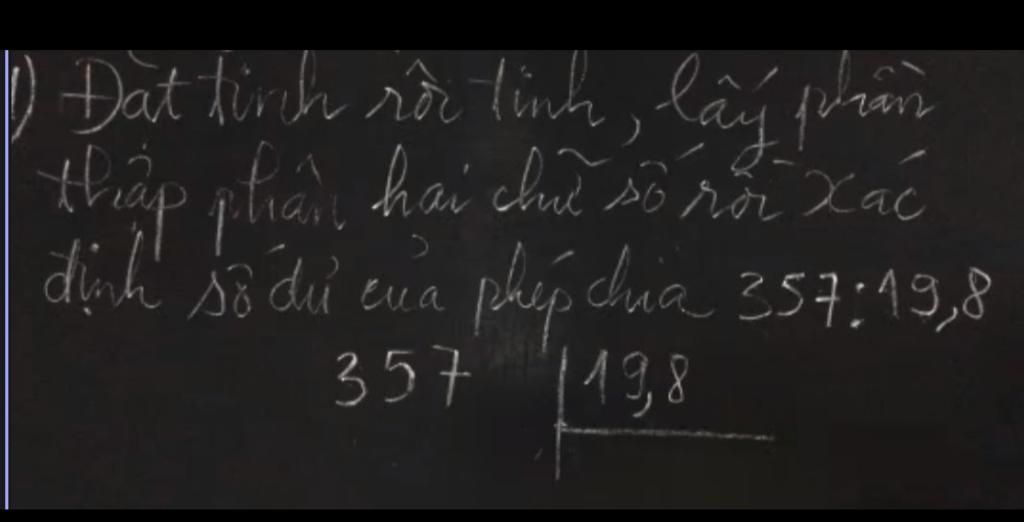 1) Đặt tính rồi tính, lấy phần
thập phân hai chữ số rồi xác
định số dư của phép chia 357:19,8
357 19,8